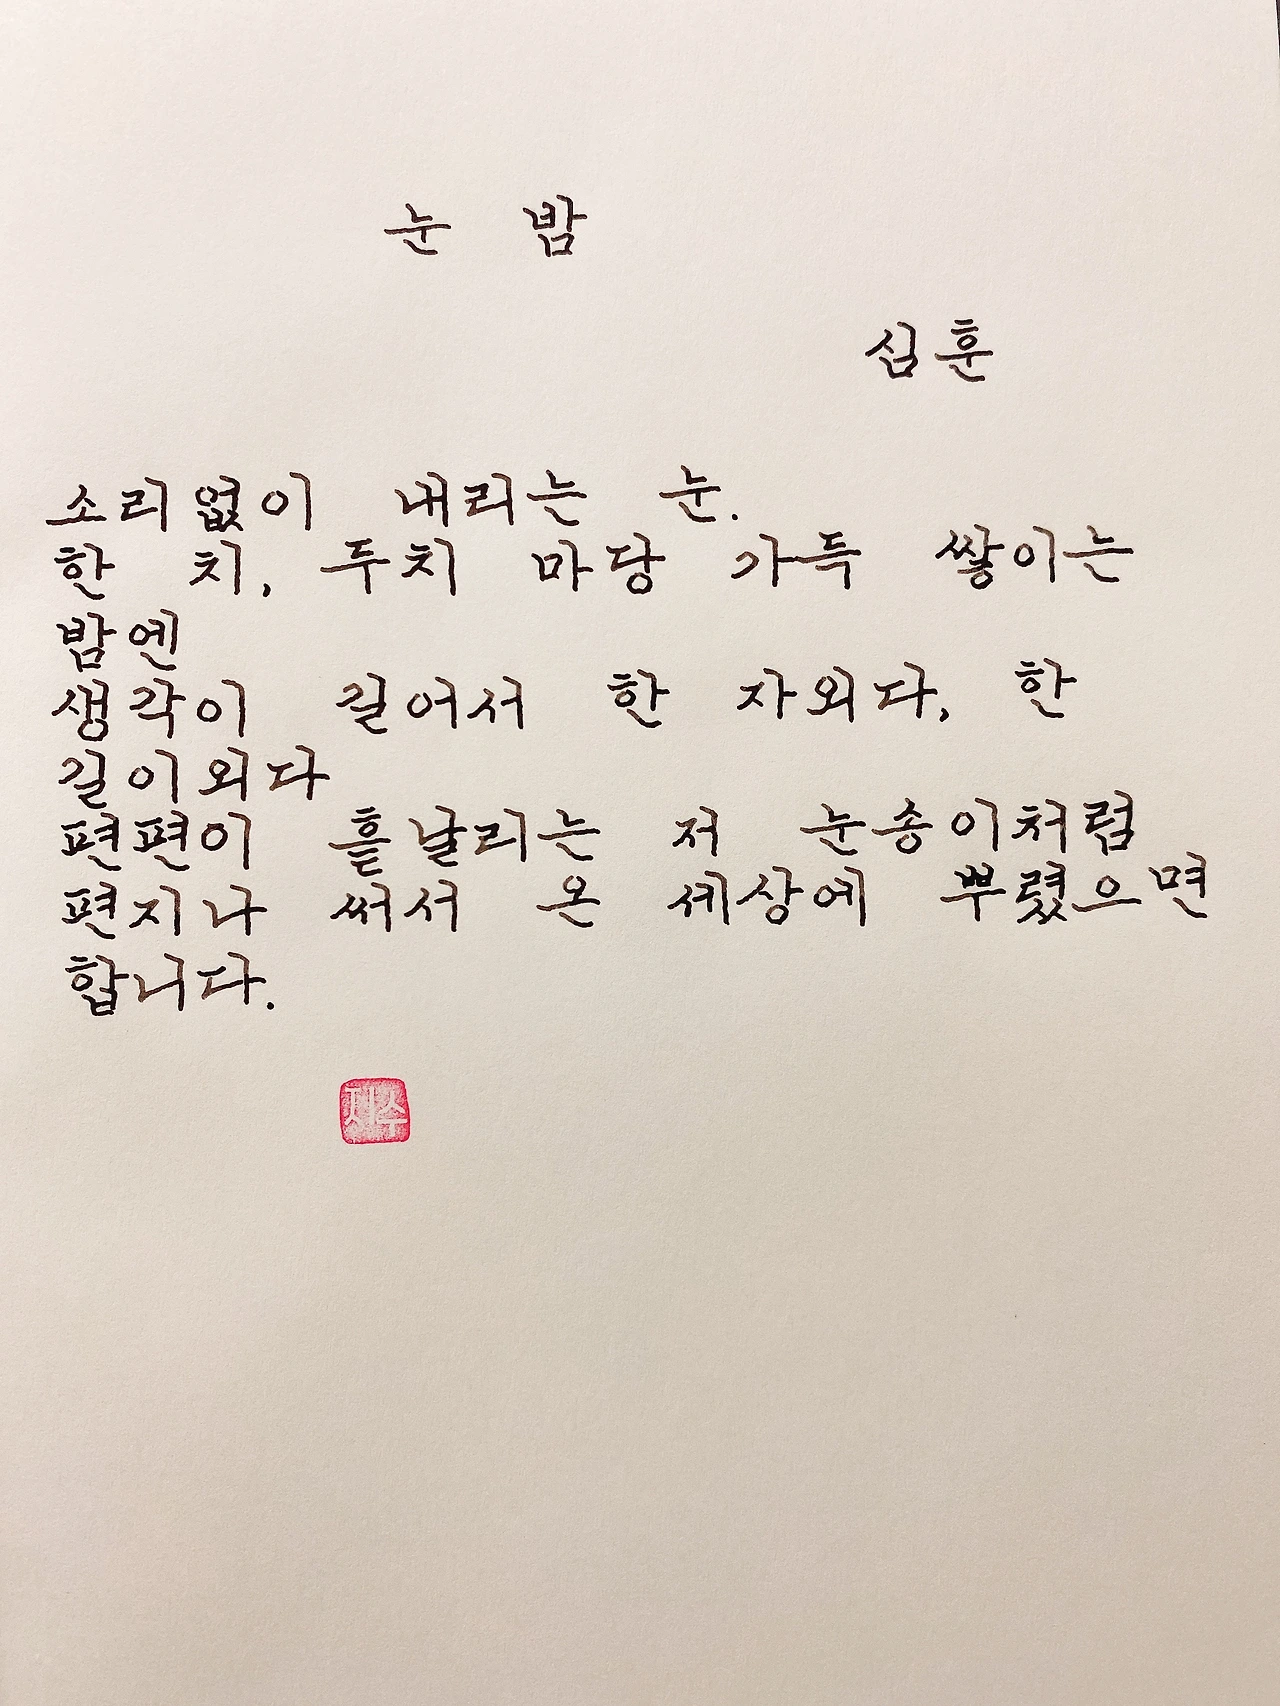 눈 밤
심훈
소리없이 내리는 눈.
한 치, 두치 마당 가득 쌓이는
밤엔
생각이 길어서 한 자외다, 한
길이외다
편편이 흩날리는 저 눈송이처럼
편지나 써서 온 세상에 뿌렸으면
합니다.